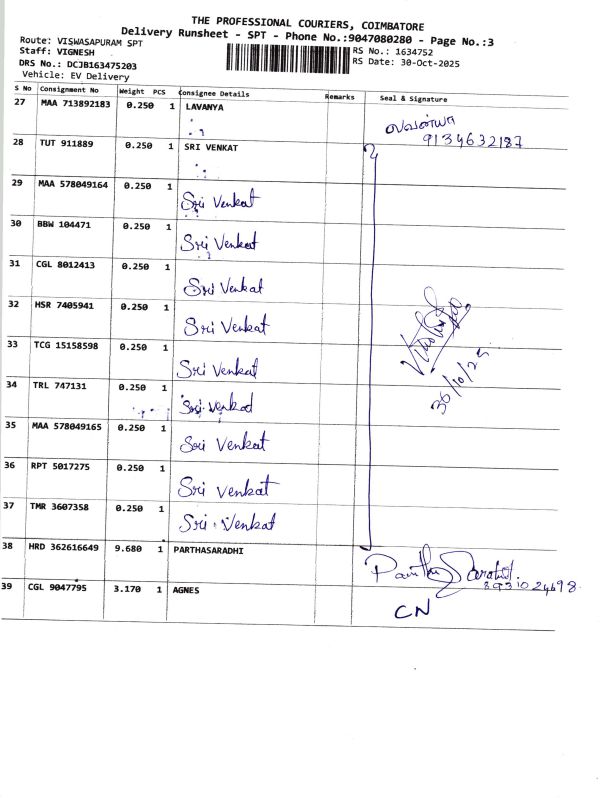 THE PROFESSIONAL COURIERS, COIMBATORE
Delivery Runsheet - SPT - Phone No.:9047080280 - Page No.:3
Route: VISWASAPURAM SPT
Staff: VIGNESH
RS No.: 1634752
DRS No.: DCJB163475203
RS Date: 30-Oct-2025
Vehicle: EV Delivery
S No Consignment No Weight PCS Consignee Details Remarks Seal & Signature
27 MAA 713892183 0.250 1 LAVANYA லாவண்யா
9134632187
28 TUT 911889 0.250 1 SRI VENKAT
29 MAA 578049164 0.250 1
Sri Venkat
30 BBW 104471 0.250 1
Sri Venkat
31 CGL 8012413 0.250 1
Sri Venkat
32 HSR 7405941 0.250 1
Sri Venkat
33 TCG 15158598 0.250 1
Sri Venkat
30/10/25
34 TRL 747131 0.250 1
Sri Venkat
35 MAA 578049165 0.250 1
Sri Venkat
36 RPT 5017275 0.250 1
Sri Venkat
37 TMR 3607358 0.250 1
Sri Venkat
38 HRD 362616649 9.680 1 PARTHASARADHI
8931024698
39 CGL 9047795 3.170 1 AGNES
CN